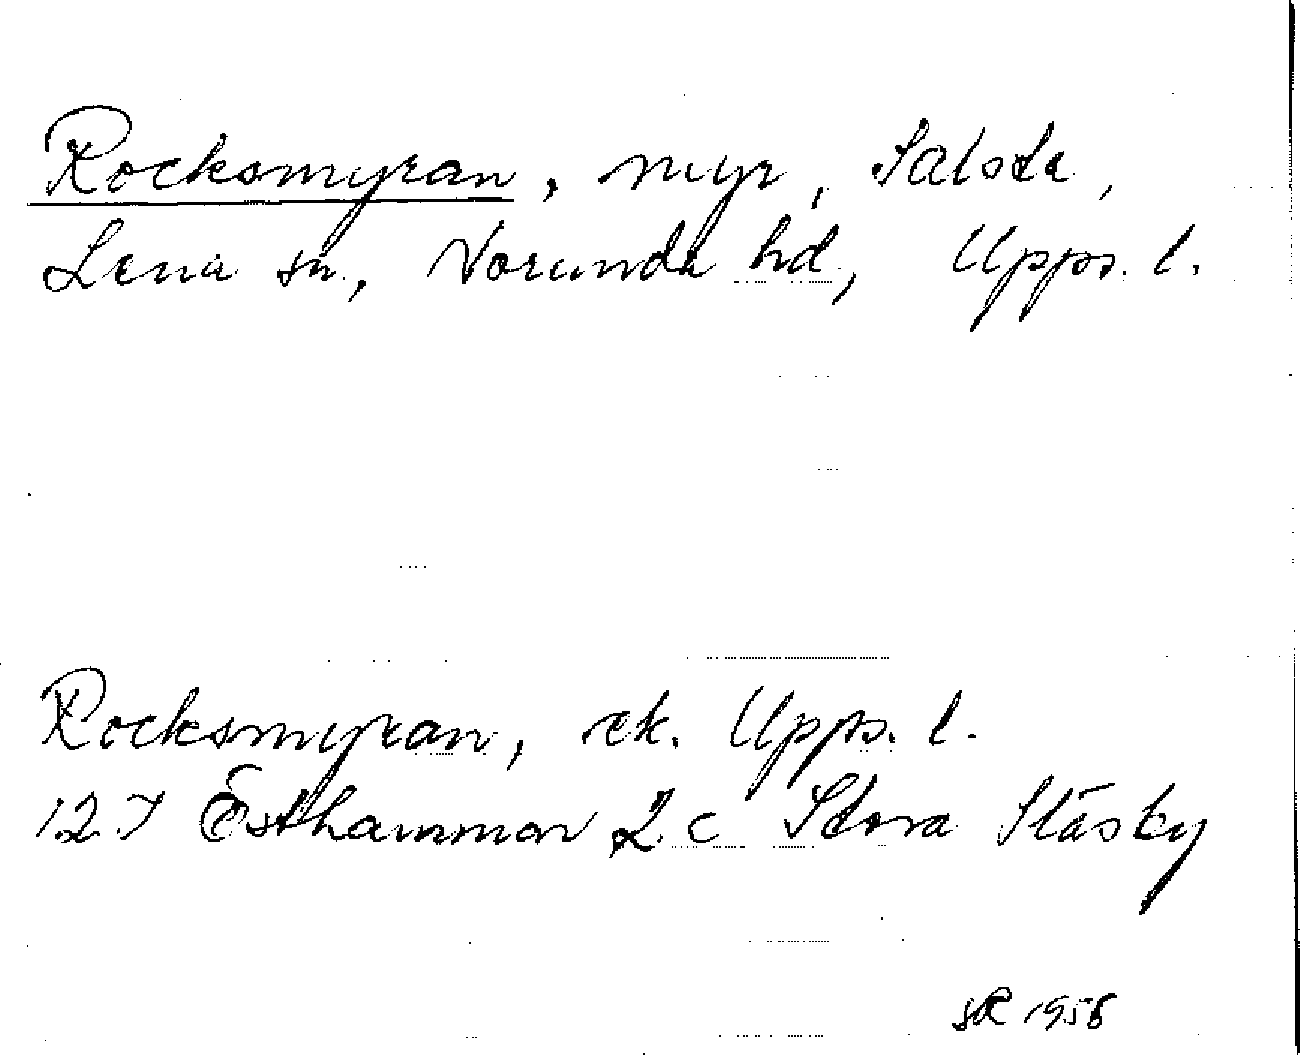 Rocksmyran, myr, Salsta,
Lena sn., Norunda hd, Upps. l.
Rocksmyran, ek. Upps. l.
12 I Östhammar 2 c Stora Stäsby
1956